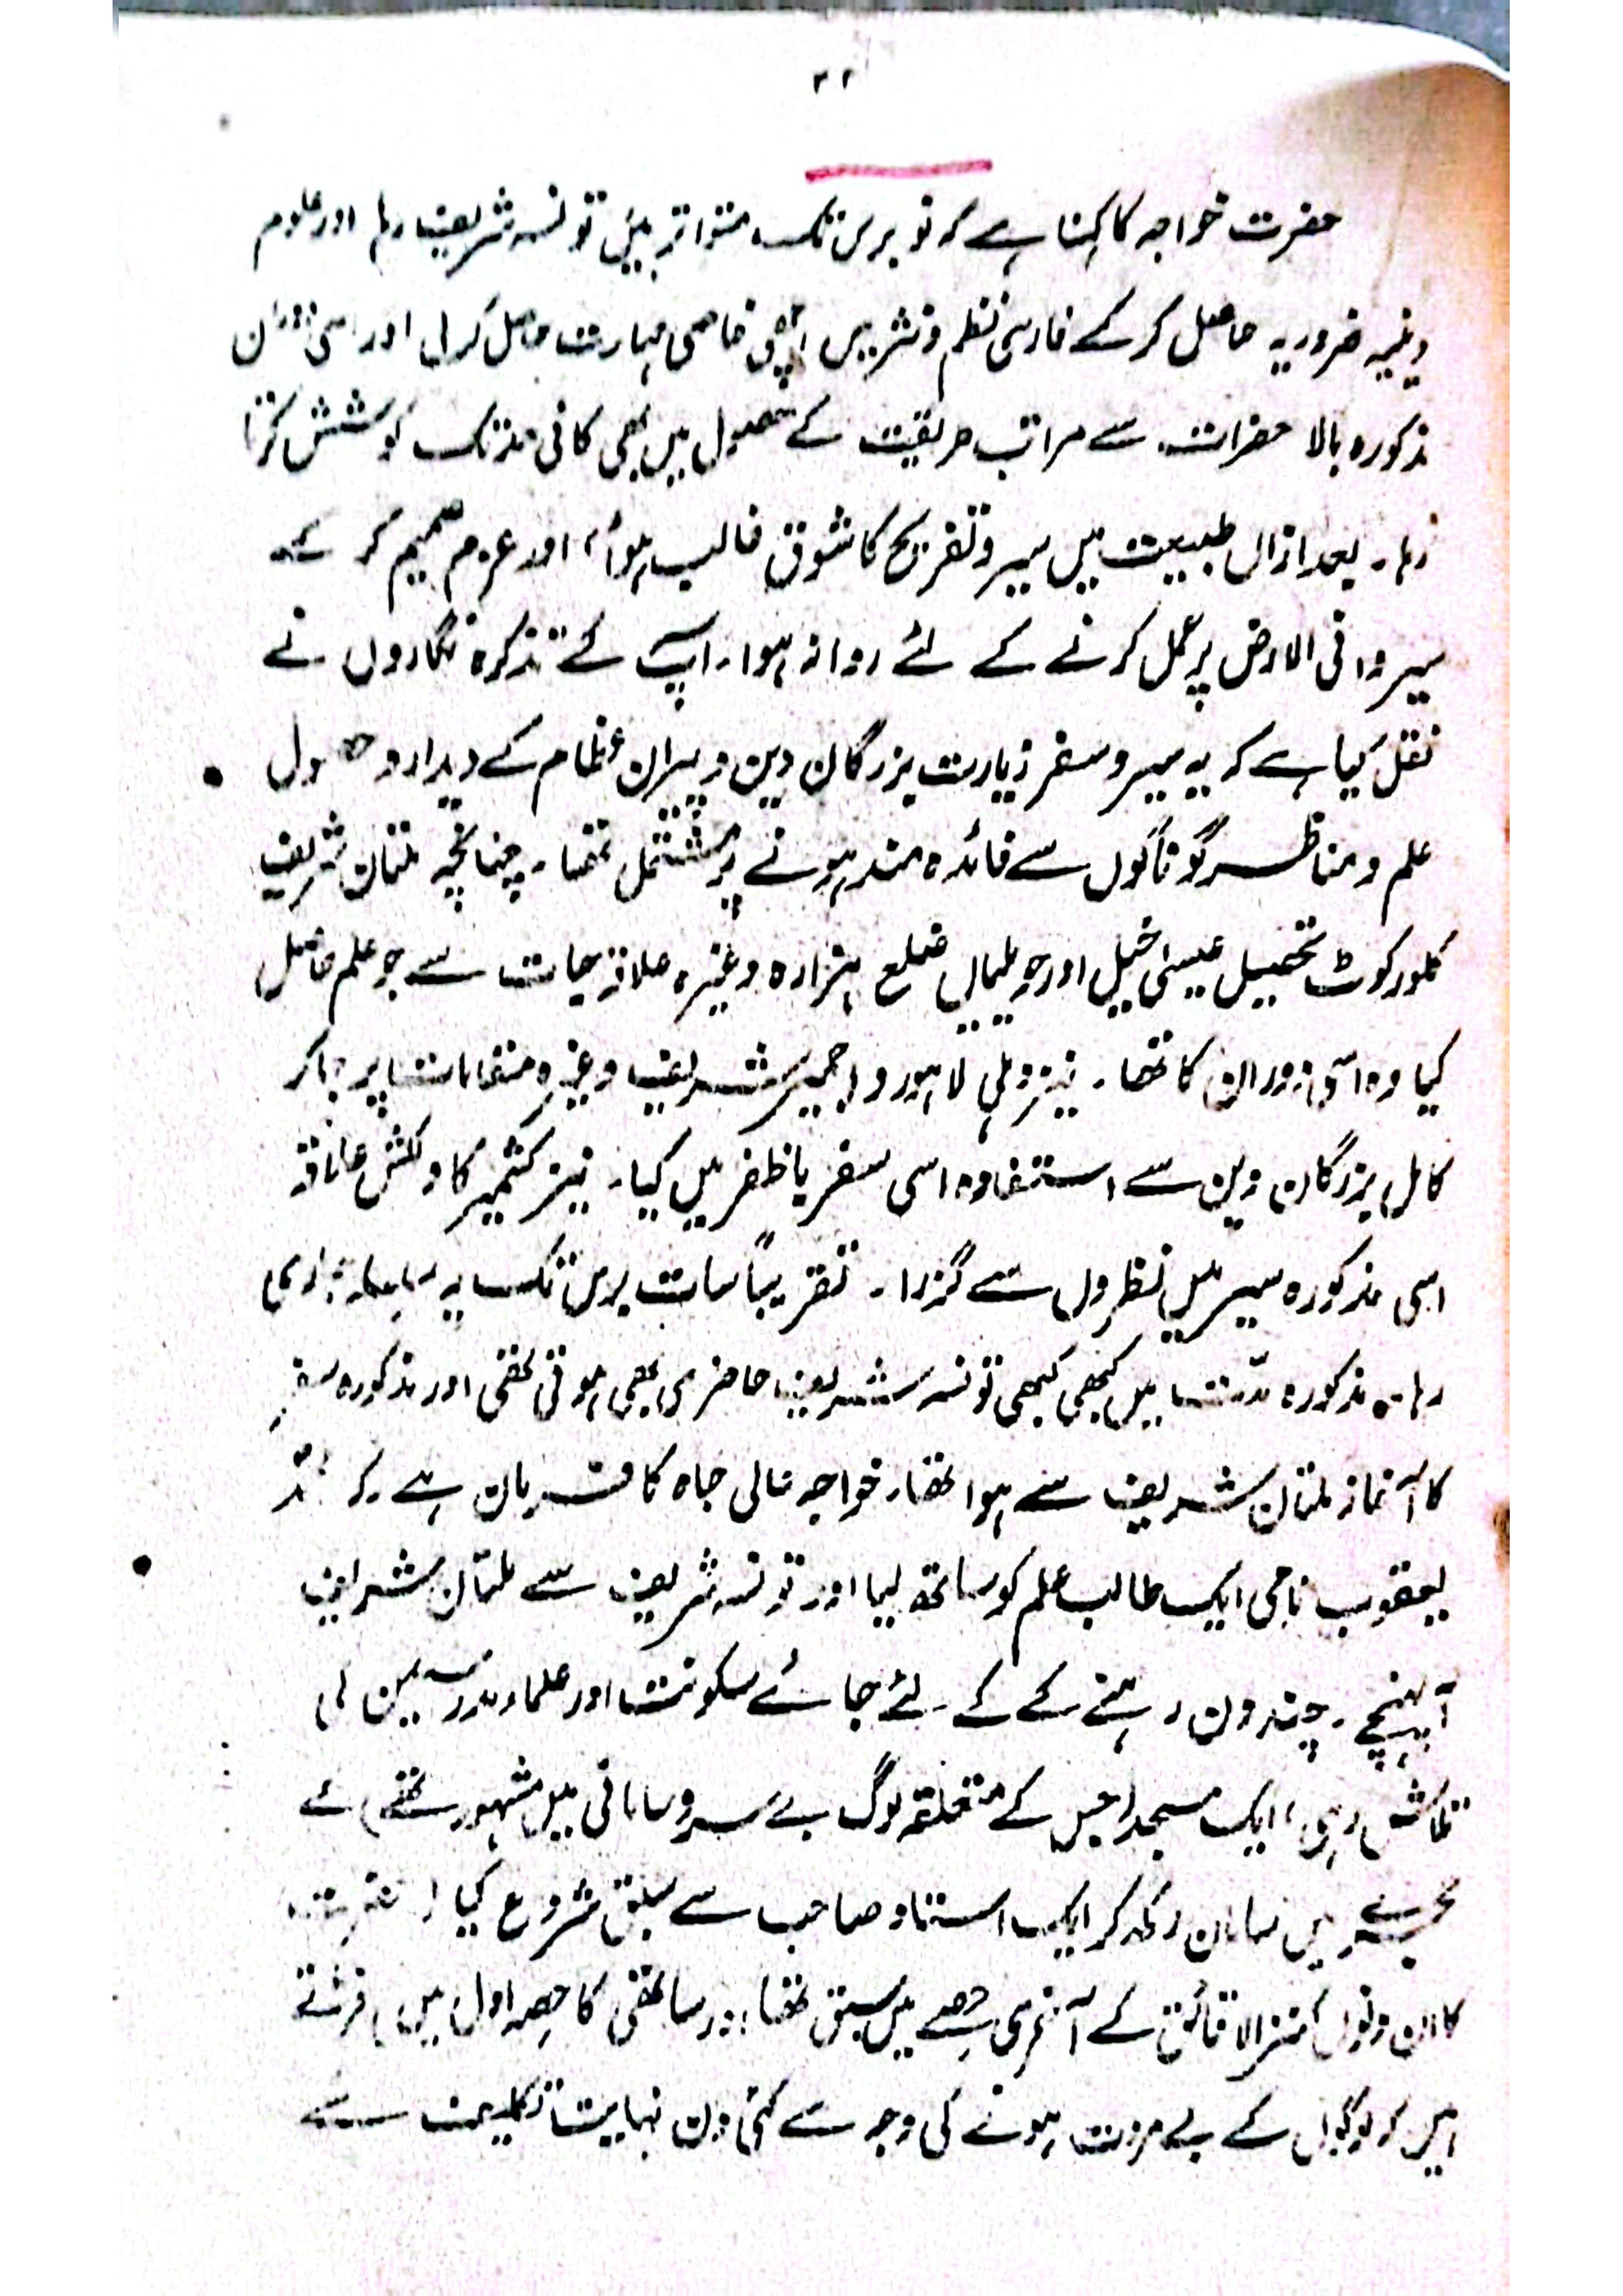 ۲۲
حضرت خواجہ کا کہنا ہے کہ نو برس تک متواتر میں تونسہ شریف رہا اور علوم
دینیہ ضروریہ حاصل کر کے فارسی نظم و نثر میں اچھی خاصی مہارت حاصل کر لی اور اسی دوران
مذکورہ بالا حضرات سے مراتب طریقت کے حصول میں بھی کافی حد تک کوشش کرتا
رہا۔ بعد ازاں طبیعت میں سیر و تفریح کا شوق غالب ہوا، اور عزم صمیم کر کے
سیروا فی الارض پر عمل کرنے کے لئے روانہ ہوا۔ آپ کے تذکرہ نگاروں نے
نقل کیا ہے کہ یہ سیر و سفر زیارت بزرگان دین و پیران عظام کے دیدار و حصول
علم و مناظر گوناگوں سے فائدہ مند ہونے پر مشتمل تھا۔ چنانچہ ملتان شریف
کلور کوٹ تحصیل عیسیٰ خیل اور ضلع ہزارہ وغیرہ علاقہ جات سے جو علم حاصل
کیا وہ اسی دوران کا تھا۔ نیز دہلی لاہور و اجمیر شریف وغیرہ مقامات پر جا کر
کامل بزرگان دین سے استفادہ اسی سفر باظفر میں کیا۔ نیز کشمیر کا دلکش علاقہ
اسی مذکورہ سیر میں نظروں سے گزرا۔ تقریباً سات برس تک یہ سلسلہ جاری
رہا۔ مذکورہ مدت میں کبھی کبھی تونسہ شریف حاضری بھی ہوتی تھی اور مذکورہ سفر
کا آغاز ملتان شریف سے ہوا تھا۔ خواجہ عالی جاہ کا فرمان ہے کہ محمد
یعقوب نامی ایک طالب علم کو ساتھ لیا اور تونسہ شریف سے ملتان شریف
آ پہنچے۔ چند دن رہنے کے کے لئے جائے سکونت اور علماء مدرسین کی
تلاش رہی، ایک مسجد (جس کے متعلقہ لوگ بے سروسامانی میں مشہور تھے) کے
حجرے میں سامان رکھ کر ایک استاد صاحب سے سبق شروع کیا
کا ان دنوں کنز الدقائق کے آخری حصے میں سبق تھا اور ساتھی کا حصہ اول میں
کے بے مروت ہونے کی وجہ سے کئی دن نہایت تکلیف سے